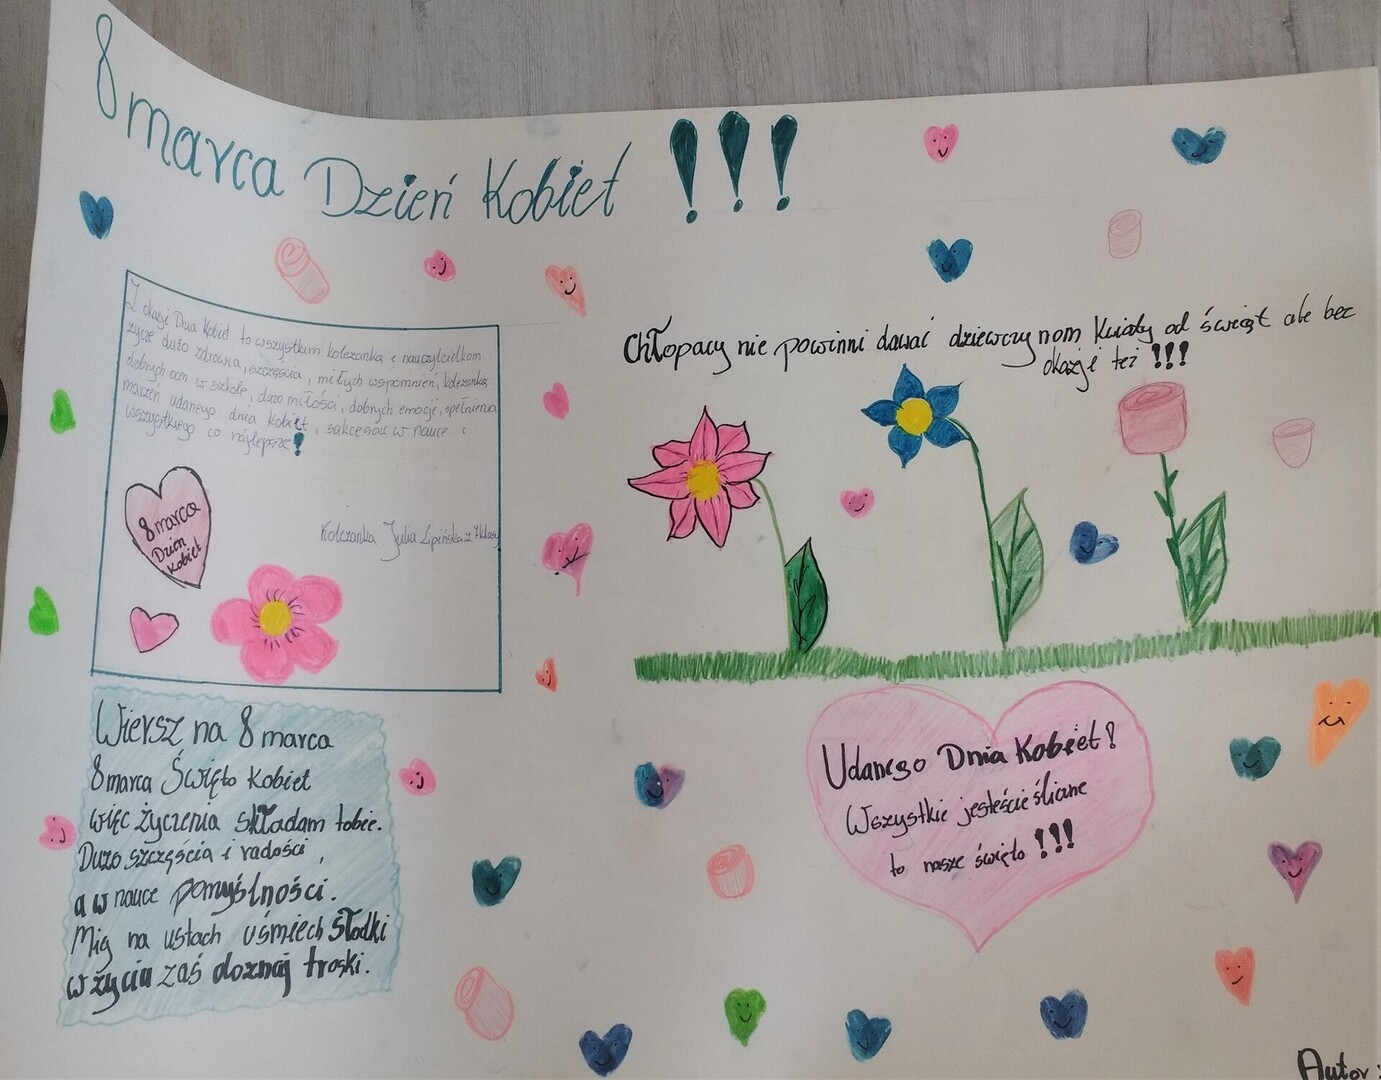 8 marca Dzień Kobiet !!!
Z okazji Dnia Kobiet to wszystkim koleżanką i nauczylcielkom
życzę dużo zdrowia, szczęścia, miłych wspomnień, koleżanką
dobrych ocen w szkole, dużo miłości, dobrych emocji, spełnienia
marzeń udanego dnia kobiet, sukcesów w nauce i
wszystkiego co najlepsze!
Koleżanka Julia Lipińska z 7 klasy
8 marca
Dzień
Kobiet
Wiersz na 8 marca
8 marca Święto Kobiet
więc życzenia składam tobie.
Dużo szczęścia i radości,
a w nauce pomyślności.
Miej na ustach uśmiech słodki
w życiu zaś doznaj troski.
Chłopacy nie powinni dawać dziewczynom kwiaty od świąt ale bez
okazji też !!!
Udanego Dnia Kobiet!
Wszystkie jesteście śliczne
to nasze święto !!!
Autor: